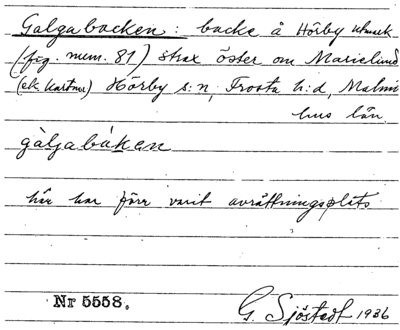 Galgabacken: backe å Hörby utmark
(fig. num. 81) strax öster om Marielund
(ek. kartan) Hörby s:n, Frosta h:d, Malmö
hus län.
gàljabáken
här har förr varit avrättningsplats
Nr 5558.
G. Sjöstedt 1936